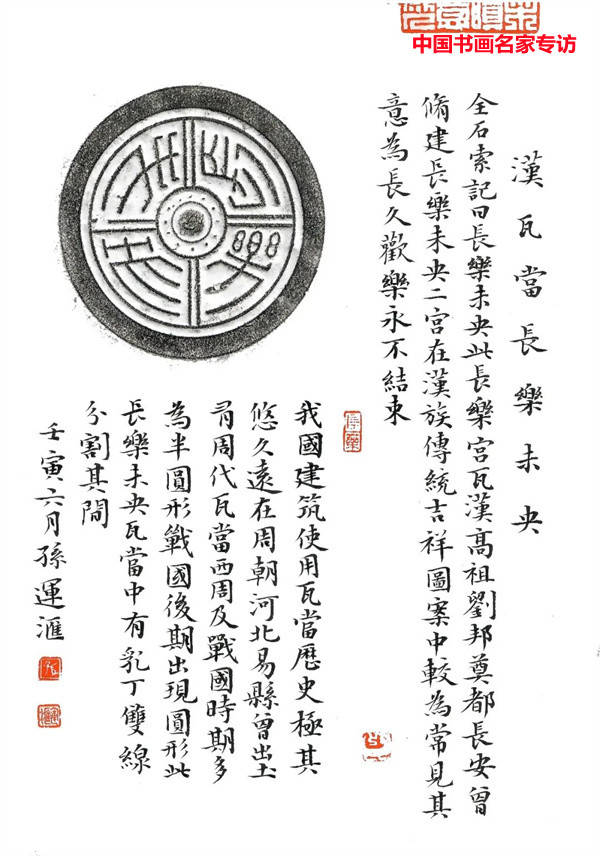 中国书画名家专访
漢瓦當長樂未央
全石索記曰長樂未央此長樂宮瓦漢高祖劉邦奠都長安曾
脩建長樂未央二宮在漢族傳統吉祥圖案中較為常見其
意為長久歡樂永不結束
我國建筑使用瓦當歷史極其
悠久遠在周朝河北易縣曾出土
有周代瓦當西周及戰國時期多
為半圓形戰國後期出現圓形此
長樂未央瓦當中有乳丁雙線
分割其間
壬寅六月孫運滙